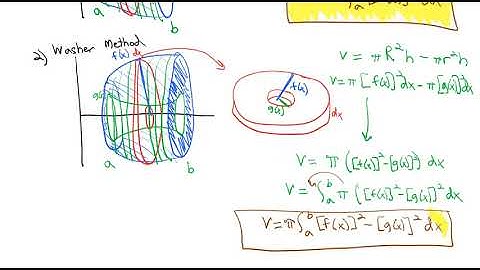 a
b
2) Washer Method
f(x) dx
g(x)
a
b
f(x)
g(x)
dx
V = πR²h - πr²h
V = π[f(x)]²dx - π[g(x)]²dx
V = π ([f(x)]² - [g(x)]²) dx
V = ∫ₐᵇ π ([f(x)]² - [g(x)]² dx
V = π ∫ₐᵇ [f(x)]² - [g(x)]² dx